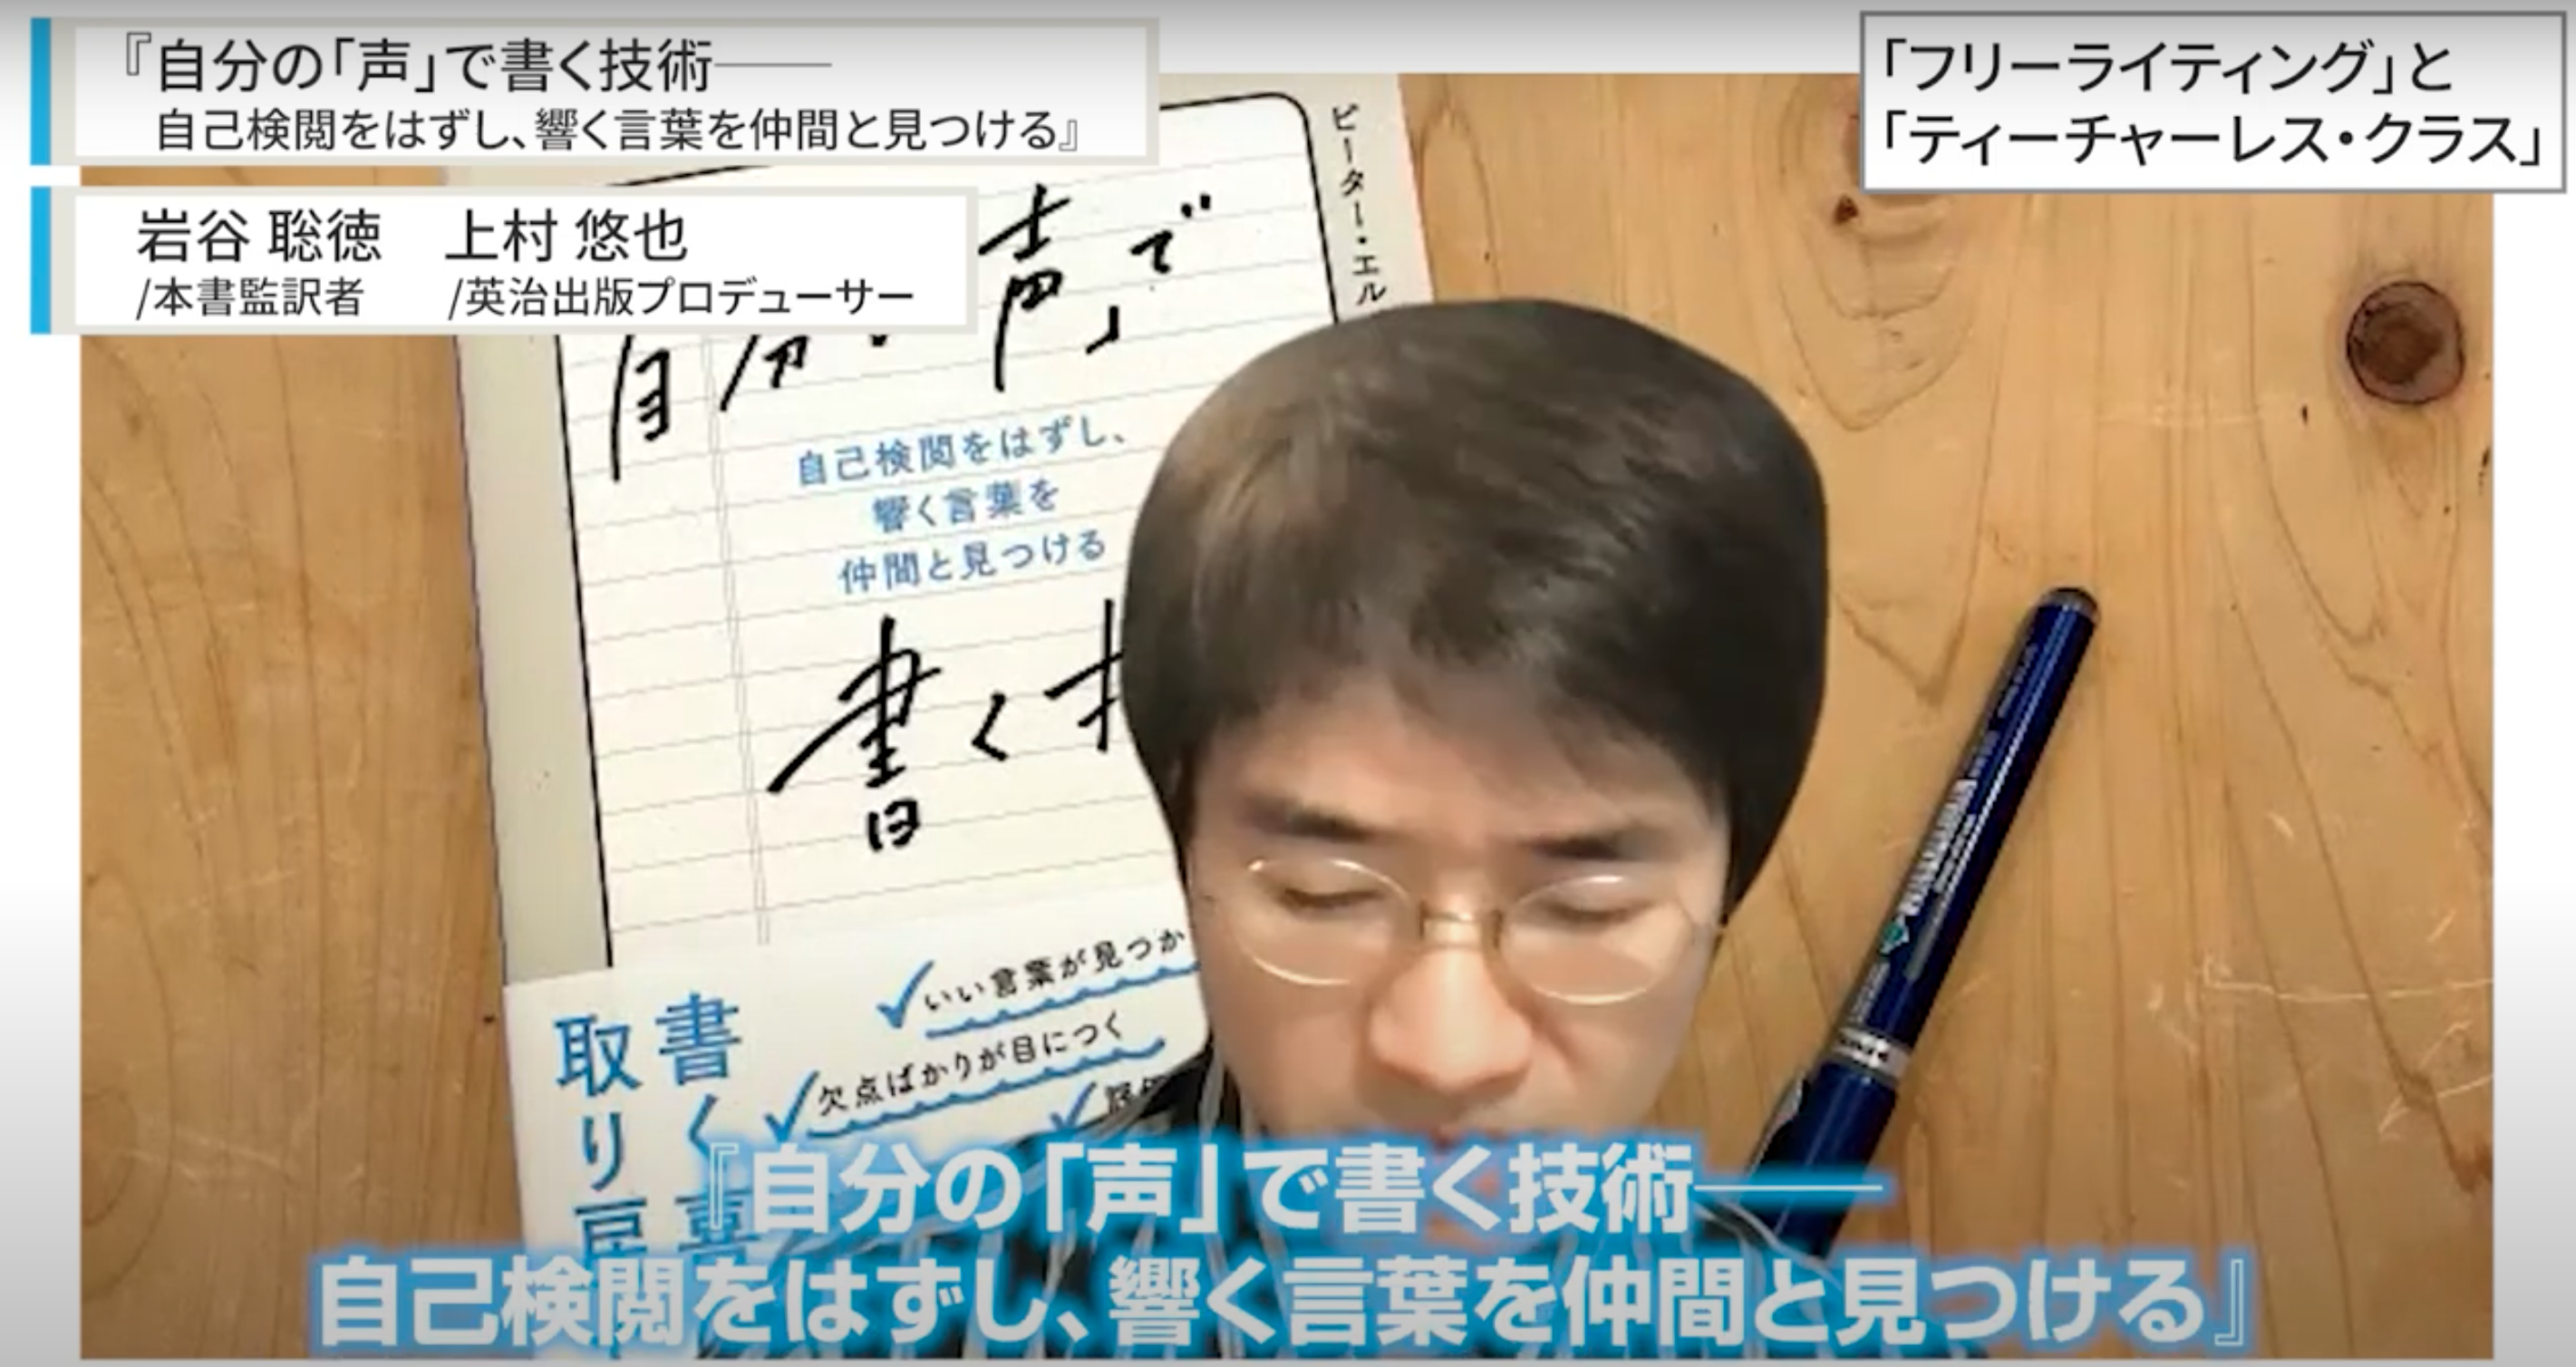 『自分の「声」で書く技術──
自己検閲をはずし、響く言葉を仲間と見つける』
岩谷 聡徳　上村 悠也
/本書監訳者　/英治出版プロデューサー
「フリーライティング」と
「ティーチャーレス・クラス」
ピーター・エル
自分
声」で
自己検閲をはずし、
響く言葉を
仲間と見つける
書く
いい言葉が見つか
欠点ばかりが目につく
書く
取り
『自分の「声」で書く技術──
自己検閲をはずし、響く言葉を仲間と見つける』